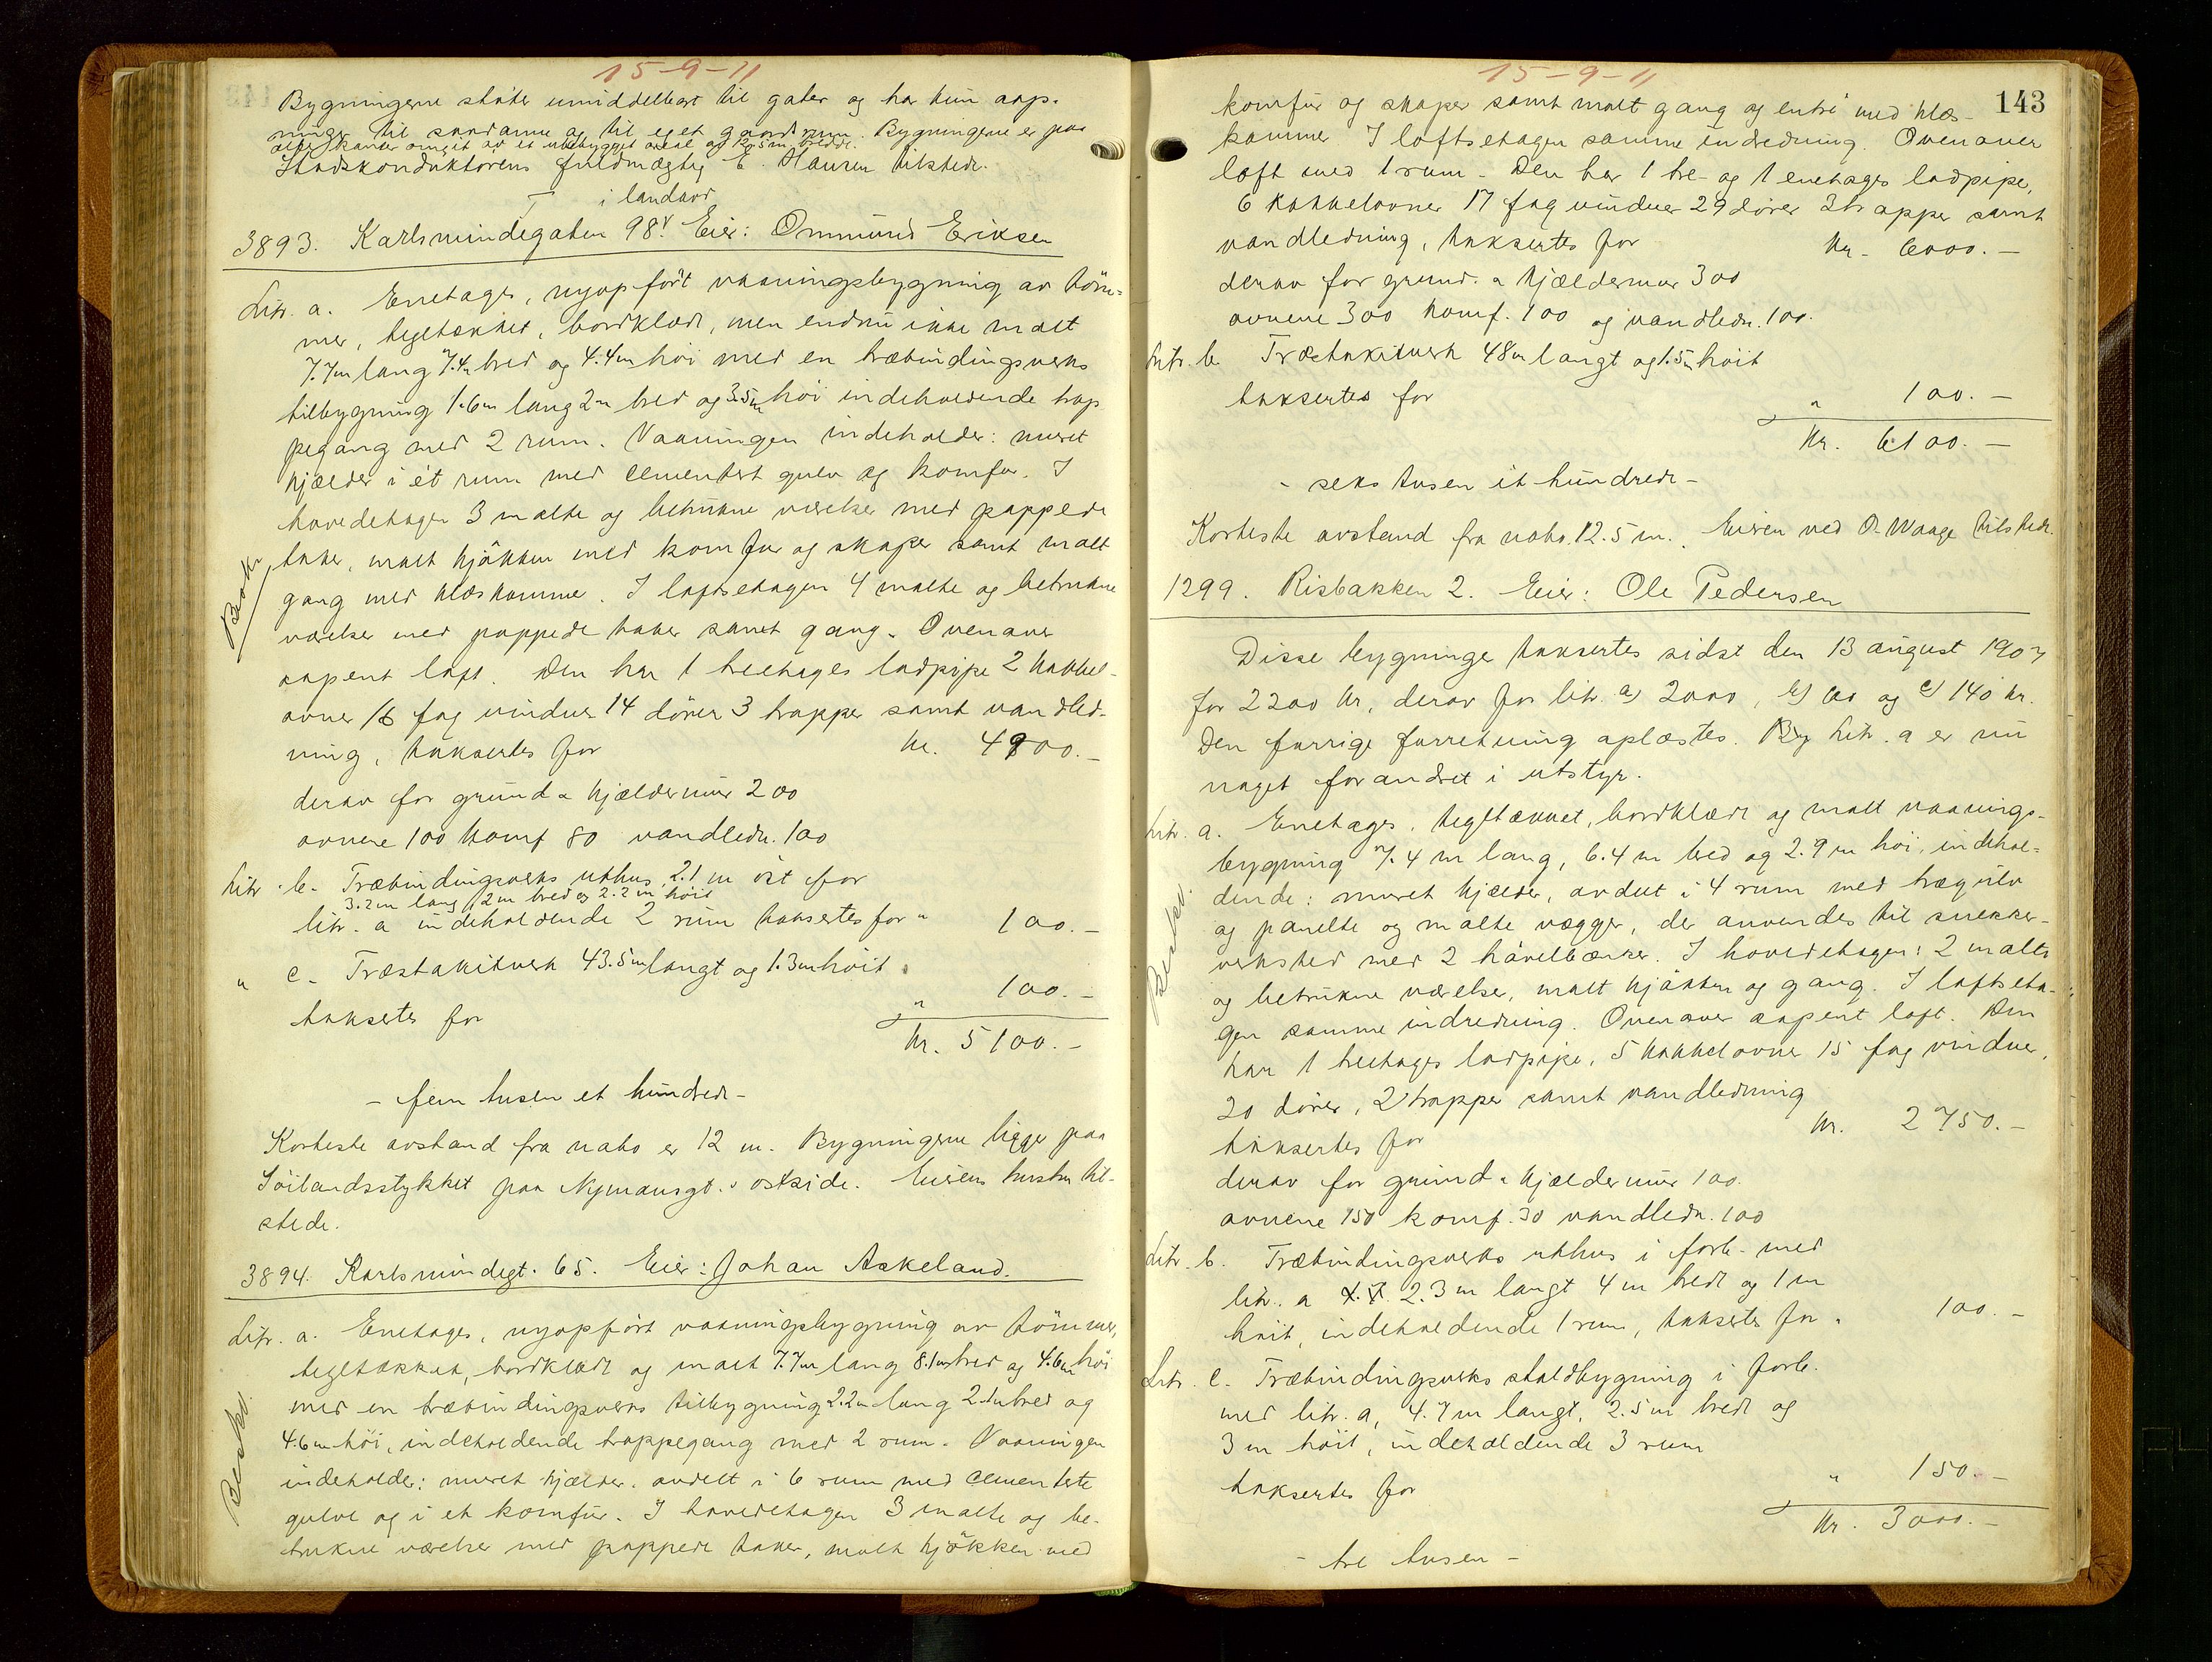 15-9-11
Bygningerne støter umiddelbart til gater og har kun aap-
ninger til sundamme og til eget gaardsrum. Bygningerne er paa
alle kanter omgit av et ubebygget areal av ... 5 m bredde.
Stadskonduktørens fuldmægtig E. Hansen tilstede.
i landavd
3893. Karlsmindegaten 98. Eier: Ommund Eriksen
Litr. a. Enetages, nyopført vaaningsbygning av tøm-
mer, tegltækket, bordklædt, men endnu ikke malt
7.7m lang 7.4m bred og 4.4m høi med en træbindingsverks
tilbygning 1.6m lang 2m bred og 3.5m høi indeholdende trap
pegang med 2 rum. Vaaningen indeholder: muret
kjælder i ét rum med cementert gulv og komfur. I
hovedetagen 3 malte og betrukne værelser med pappede
taker, malt kjøkken med komfur og skaper samt malt
gang med klæskammer. I loftsetagen 4 malte og betrukne
værelser med pappede taker samt gang. Ovenover
aapent loft. Den har 1 treetages ladpipe 2 kakkel-
ovner 16 fag vinduer 14 dører 3 trapper samt vandled-
ning, taksertes for kr. 4900.-
derav for grund & kjældermur 200
ovnene 100 komf 80 vandledn. 100
Litr. b. Træbindingsverks uthus 2.1 m øst for
3.2m lang, 2m bred og 2.2m høit
litr. a indeholdende 2 rum taksertes for " 100.-
" c. Træstakitverk 43.5m langt og 1.3m høit
taksertes for " 100.-
kr. 5100.-
- fem tusen et hundrede -
Korteste avstand fra nabo er 12 m. Bygningerne ligger paa
Söilandsstykket paa Nymansgt.s østside. Eierens hustru til-
stede.
3894. Karlsmindegt. 65. Eier: Johan Askeland.
Litr. a. Enetages, nyopført vaaningsbygning av tømmer,
tegltækket, bordklædt og malt 7.7m lang 8.1m bred og 4.6m høi
med en træbindingsverks tilbygning 2.2m lang 2.1m bred og
4.6m høi, indeholdende trappegang med 2 rum. Vaaningen
indeholder: muret kjælder, avdelt i 6 rum med cementerte
gulve og i et komfur. I hovedetagen 3 malte og be-
trukne værelser med pappede taker, malt kjøkken med
15-9-11
143
komfur og skaper samt malt gang og entré med klæs-
kammer I loftsetagen samme indredning. Ovenover
loft med 1 rum. Den har 1 tre- og 1 enetages ladpipe,
6 kakkelovner 17 fag vinduer 29 dører 3 trapper samt
vandledning, taksertes for kr. 6000.-
derav for grund. & kjældermur 300
ovnene 300 komf. 100 og vandledn. 100.
Litr. b Træstakitverk 48m langt og 1.5m høit
taksertes for " 100.-
kr. 6100.-
- seks tusen et hundrede -
Korteste avstand fra nabo 12.5 m. Eieren ved O. Waage tilstede.
1299. Risbakken 2. Eier: Ole Pedersen
Disse bygninger taksertes sidst den 13 august 1907
for 2200 kr, derav for litr. a) 2000, b) 60 og c) 140 kr.
Den forrige forretning oplæstes. By Litr. a er nu
noget forandret i utstyr.
Litr. a. Enetages, tegltækket, bordklædt og malt vaanings-
bygning 7.4 m lang, 6.4 m bred og 2.9 m høi, indehol-
dende: muret kjælder, avdelt i 4 rum med trægulv
og panelte og malte vægger, der anvendes til snekker-
verksted med 2 høvelbænker. I hovedetagen: 2 malte
og betrukne værelser, malt kjøkken og gang. I loftseta-
gen samme indredning. Ovenover aapent loft. Den
har 1 treetages ladpipe, 5 kakkelovner 15 fag vinduer,
20 dører, 2 trapper samt vandledning
taksertes for kr. 2750.-
derav for grund & kjældermur 100.
ovnene 150 komf. 30 vandledn. 100
Litr. b. Træbindingsverks uthus i forb. med
litr. a 2.3 m langt 4 m bredt og 1 m
høit, indeholdende 1 rum, taksertes for " 100.-
Litr. c. Træbindingsverks staldbygning i forb.
med litr. a, 4.7 m langt, 2.5 m bredt og
3 m høit, indeholdende 3 rum
taksertes for " 150.-
kr. 3000.-
- tre tusen -